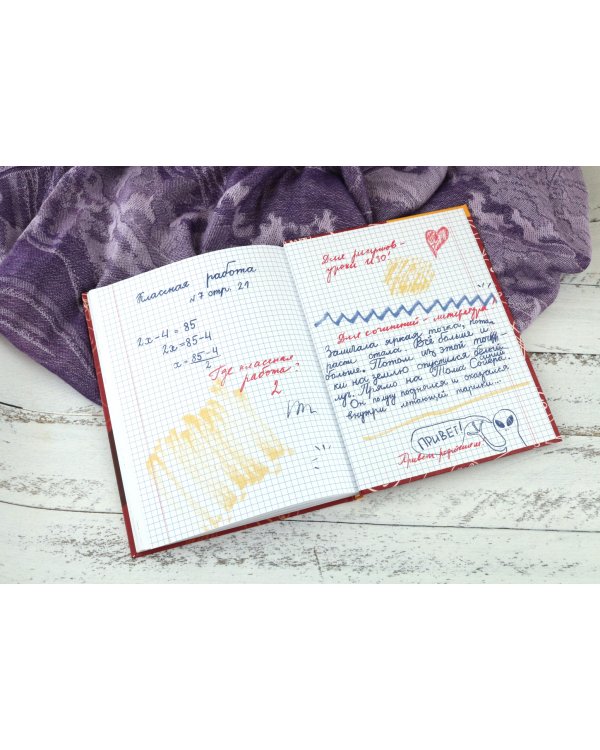 Классная работа
№7 стр. 21
2x-4=85
2x=85-4
x=85-4
2
Где классная
работа?
2
Для рисунков -
уроки ИЗО!
Для сочинений - литература
Замигала яркая точка,
расти стала. Всё больше и
больше. Потом из этой точ-
ки на землю опустился белый
луч. Прямо на Тома Сойера.
Он сразу поднялся и оказался
внутри летающей тарелки...
ПРИВЕТ!
Привет родителям!